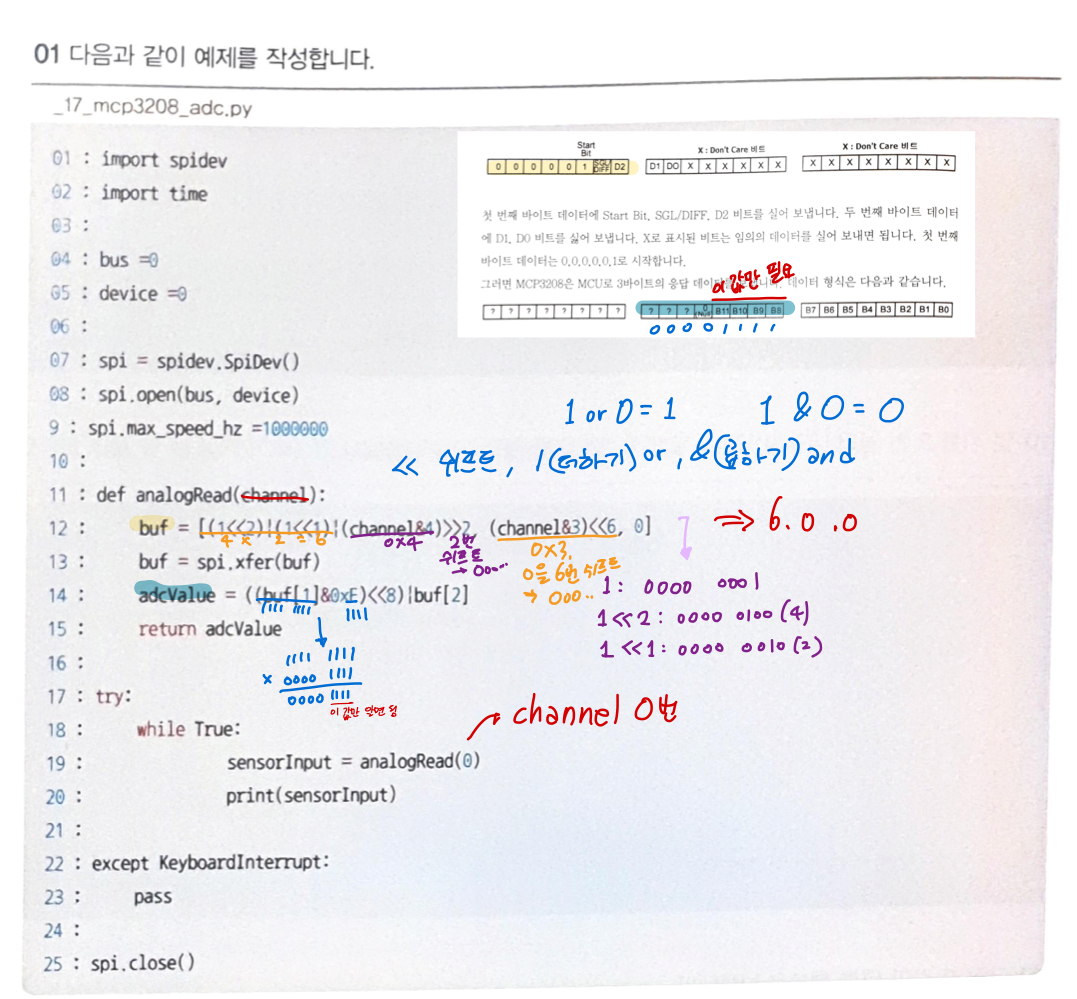 01 다음과 같이 예제를 작성합니다.
_17_mcp3208_adc.py
01 : import spidev
02 : import time
03 :
04 : bus =0
05 : device =0
06 :
07 : spi = spidev.SpiDev()
08 : spi.open(bus, device)
9 : spi.max_speed_hz =1000000
10 :
11 : def analogRead(channel):
12 : buf = [(1<<2)|(1<<1)|(channel&4)>>2, (channel&3)<<6, 0]
13 : buf = spi.xfer(buf)
14 : adcValue = ((buf[1]&0xF)<<8)|buf[2]
15 : return adcValue
16 :
17 : try:
18 : while True:
19 : sensorInput = analogRead(0)
20 : print(sensorInput)
21 :
22 : except KeyboardInterrupt:
23 : pass
24 :
25 : spi.close()
Start
Bit
0 0 0 0 0 1 SGL/DIFF D2
X : Don't Care 비트
D1 D0 X X X X X X
X : Don't Care 비트
X X X X X X X X
첫 번째 바이트 데이터에 Start Bit, SGL/DIFF, D2 비트를 실어 보냅니다. 두 번째 바이트 데이터
에 D1, D0 비트를 실어 보냅니다. X로 표시된 비트는 임의의 데이터를 실어 보내면 됩니다. 첫 번째
바이트 데이터는 0,0,0,0,0,1로 시작합니다.
그러면 MCP3208은 MCU로 3바이트의 응답 데이터를 데이터 형식은 다음과 같습니다.
이 값만 필요
? ? ? ? ? ? ? ?
? ? ? 0 (Null) B11 B10 B9 B8
B7 B6 B5 B4 B3 B2 B1 B0
0 0 0 0 1 1 1 1
1 or 0 = 1 1 & 0 = 0
<< 쉬프트, | (더하기) or, & (곱하기) and
⇒ 6.0.0
4 x 2 = 6
0x4
2번
쉬프트
→ 000···
0x3.
0을 6번 쉬프트
→ 000··
1: 0000 0001
1<<2: 0000 0100 (4)
1<<1: 0000 0010 (2)
1111 1111
1111
1111 1111
x 0000 1111
0000 1111
이 값만
channel 0번